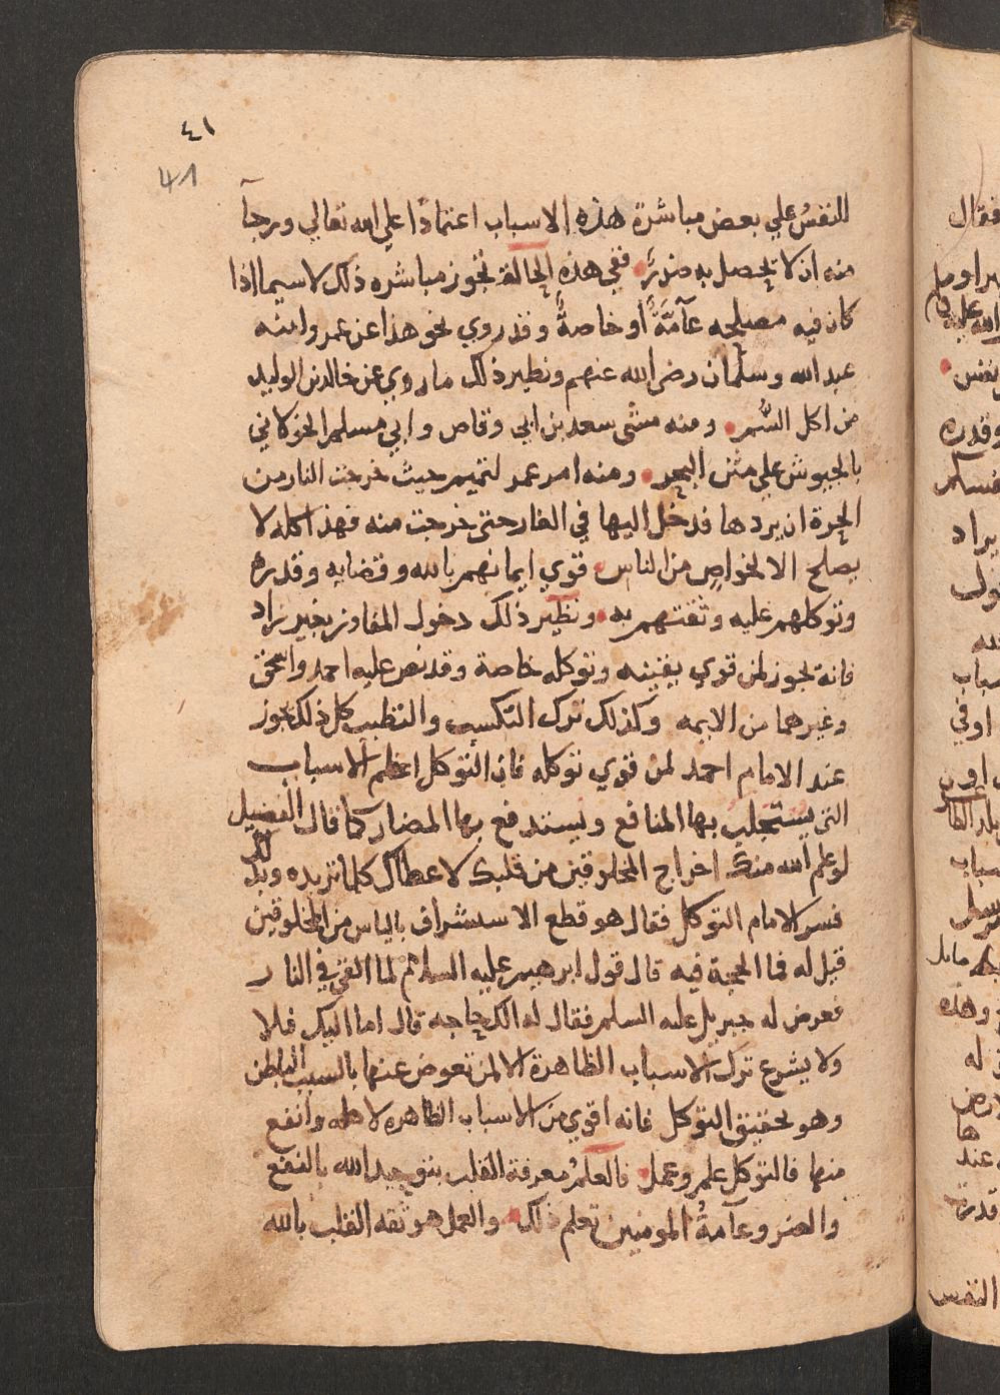 ٤١
41
للنفسُ علي بعض مباشرة هذه الاسباب اعتمادًا علي الله تعالي ورجآ
منه ان لا يحصل به ضررٌ ففي هذه الحالة تجوز مباشره ذلك لاسيما اذا
كان فيه مصلحه عآمَّةً او خاصةً وقد روي نحو هذا عن عمر وابنه
عبد الله وسلمان رضي الله عنهم ونظير ذلك ما روي عن خالد بن الوليد
من اكل السُّم ومنه مشى سعد بن ابي وقاص وابي مسلم الخولاني
بالجيوش علي متن البحر ومنه امر عمر لتميم حيث خرجت النار من
الحرة ان يردها فدخل اليها في الغار حتى خرجت منه فهذا كله لا
يصلح الا لخواصٍ من الناس قوي ايمانهم بالله وقضايه وقدره
وتوكلهم عليه وثقتهم به ونظير ذلك دخول المفاوز بغير زاد
فانه يجوز لمن قوي يقينه وتوكله خاصة وقد نص عليه احمد واسحق
وغيرهما من الايمه وكذلك ترك التكسب والتطبب كل ذلك يجوز
عند الامام احمد لمن قوي توكله فان التوكل اعظم الاسباب
التي يستجلب بها المنافع ويستدفع بها المضار كما قال الفضيل
لو علم الله منك اخراج المخلوقين من قلبك لاعطاك كلما تريده وبذلك
فسر الامام التوكل فقال هو قطع الاستشراف بالياس من المخلوقين
قيل له فما الحجة فيه قال قول ابرهيم عليه السلام لما القي في النار
فعرض له جبريل عليه السلم فقال له الك حاجه قال اما اليك فلا
ولا يشرع ترك الاسباب الظاهرة الا لمن تعوض عنها بالسبب الباطن
وهو تحقيق التوكل فانه اقوي من الاسباب الظاهره لاهله وانفع
منها فالتوكل علم وعمل فالعلمُ معرفة القلب بتوحيد الله بالنفع
والضر وعآمةُ المومنين تعلم ذلك والعمل هو ثقه القلب بالله